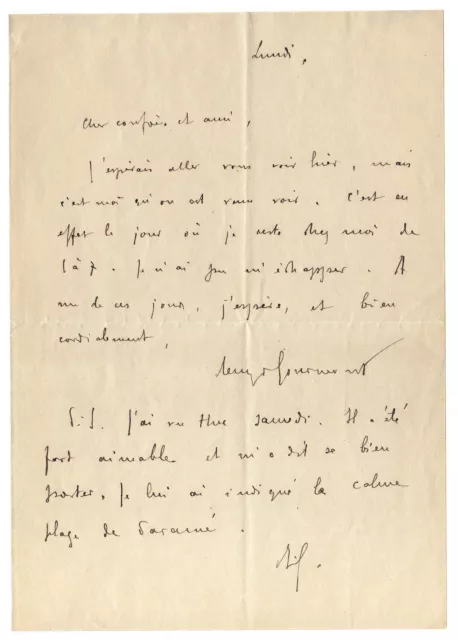 Lundi,
Cher confrère et ami,
J'espérais aller vous voir hier, mais
c'est moi qu'on est venu voir. C'est en
effet le jour où je reste chez moi de
à 7. Je n'ai pu m'échapper. A
un de ces jours, j'espère, et bien
cordialement,
Remy de Gourmont
P.S. J'ai vu samedi. Il a été
fort aimable et m'a dit se bien
porter. Je lui ai indiqué la calme
plage de Paramé.